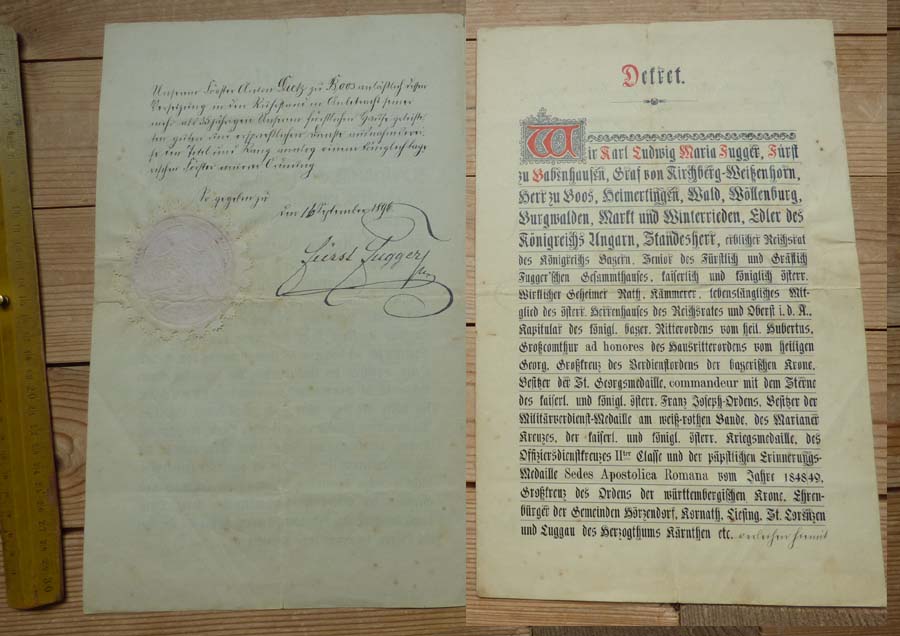 Unserem Förster Anton Dietz zu Boos anläßlich dessen
Versetzung in den Ruhestand in Anbetracht seiner
mehr als 55jährigen Unserem fürstlichen Hause geleiste-
ten guten und ersprießlichen Dienste
Titel und Rang analog einem königlich baye-
rischen Förster
So gegeben zu
den 16 September 1896
Fürst Fugger
Dekret.
Wir Karl Ludwig Maria Fugger, Fürst
zu Babenhausen, Graf von Kirchberg-Weißenhorn,
Herr zu Boos, Heimertingen, Wald, Wöllenburg,
Burgwalden, Markt und Winterrieden, Edler des
Königreichs Ungarn, Standesherr, erblicher Reichsrat
des Königreichs Bayern, Senior des Fürstlich und Gräflich
Fugger'schen Gesammthauses, kaiserlich und königlich österr.
Wirklicher Geheimer Rath, Kämmerer, lebenslängliches Mit-
glied des österr. Herrenhauses des Reichsrates und Oberst i. d. A.,
Kapitular des königl. bayer. Ritterordens vom heil. Hubertus,
Großcomthur ad honores des Hausritterordens vom heiligen
Georg, Großkreuz des Verdienstordens der bayerischen Krone,
Besitzer der St. Georgsmedaille, commandeur mit dem Sterne
des kaiserl. und königl. österr. Franz Joseph-Ordens, Besitzer der
Militärverdienst-Medaille am weiß-rothen Bande, des Marianer
Kreuzes, der kaiserl. und königl. österr. Kriegsmedaille, des
Offiziersdienstkreuzes IIter Classe und der päpstlichen Erinnerungs-
Medaille Sedes Apostolica Romana vom Jahre 1848/49,
Großkreuz des Ordens der württembergischen Krone, Ehren-
bürger der Gemeinden Hörzendorf, Kornath, Liesing, St. Lorenzen
und Luggau des Herzogthums Kärnthen etc. verleihen hiemit